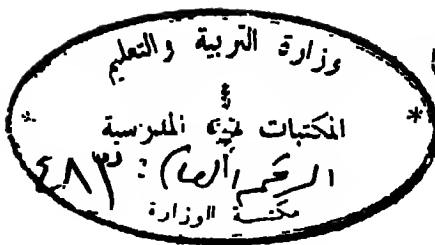 وزارة التربية والتعليم
المكتبات المدرسية
الرقم العام :
مكتبة الوزارة